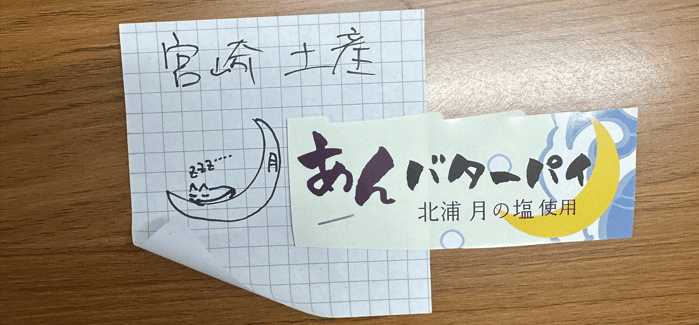 宮崎 土産
zzz....
月
あんバターパイ
北浦 月の塩使用